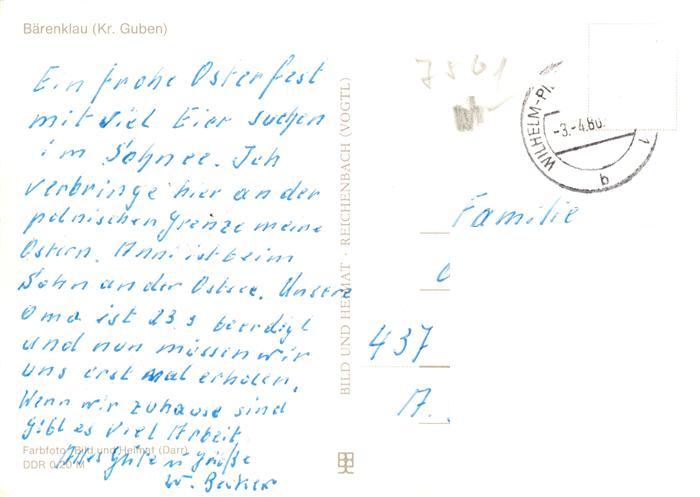 Bärenklau (Kr. Guben)
Ein frohe Osterfest
mit viel Eier suchen
im Schnee. Ich
verbringe hier an der
polnischen Grenze meine
Ostern. Anni ist beim
Sohn an der Ostsee. Unsere
Oma ist 23.3 beerdigt
und nun müssen wir
uns erst mal erholen.
Wenn wir zuhause sind
gibt es viel Arbeit.
Alles Gute u Grüße
W. Becker
Farbfoto: Bild und Heimat (Darr)
DDR 0/20 M
BILD UND HEIMAT · REICHENBACH (VOGTL)
7561
WILHELM-PI
-3.-4.80.
b
1
Familie
437
A.